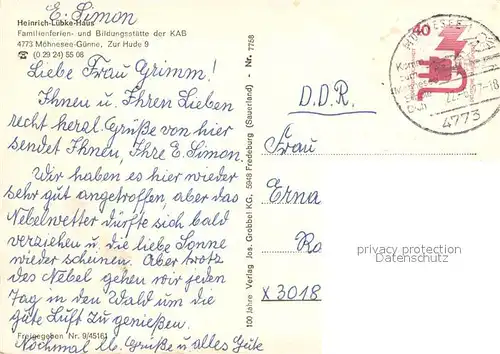 E. Simon
Heinrich-Lübke-Haus
Familienferien- und Bildungsstätte der KAB
4773 Möhnesee-Günne, Zur Hude 9
☎ (0 29 24) 55 08
Liebe Frau Grimm!
Ihnen u. Ihren Lieben
recht herzl. Grüße von hier
sendet Ihnen, Ihre E. Simon.
Wir haben es hier wieder
sehr gut angetroffen, aber das
Nebelwetter dürfte sich bald
verziehen u. die liebe Sonne
wieder scheinen. Aber trotz
des Nebel gehen wir jeden
Tag in den Wald um die
gute Luft zu genießen.
Freigegeben Nr. 9/45161
Nochmal lb. Grüße u. alles Gute
100 Jahre Verlag Jos. Grobbel KG, 5948 Fredeburg (Sauerland) - Nr. 7758
40
MÖHNESEE
4773
D.D.R.
Frau
Erna
Ro
X 3018
privacy protection
Datenschutz